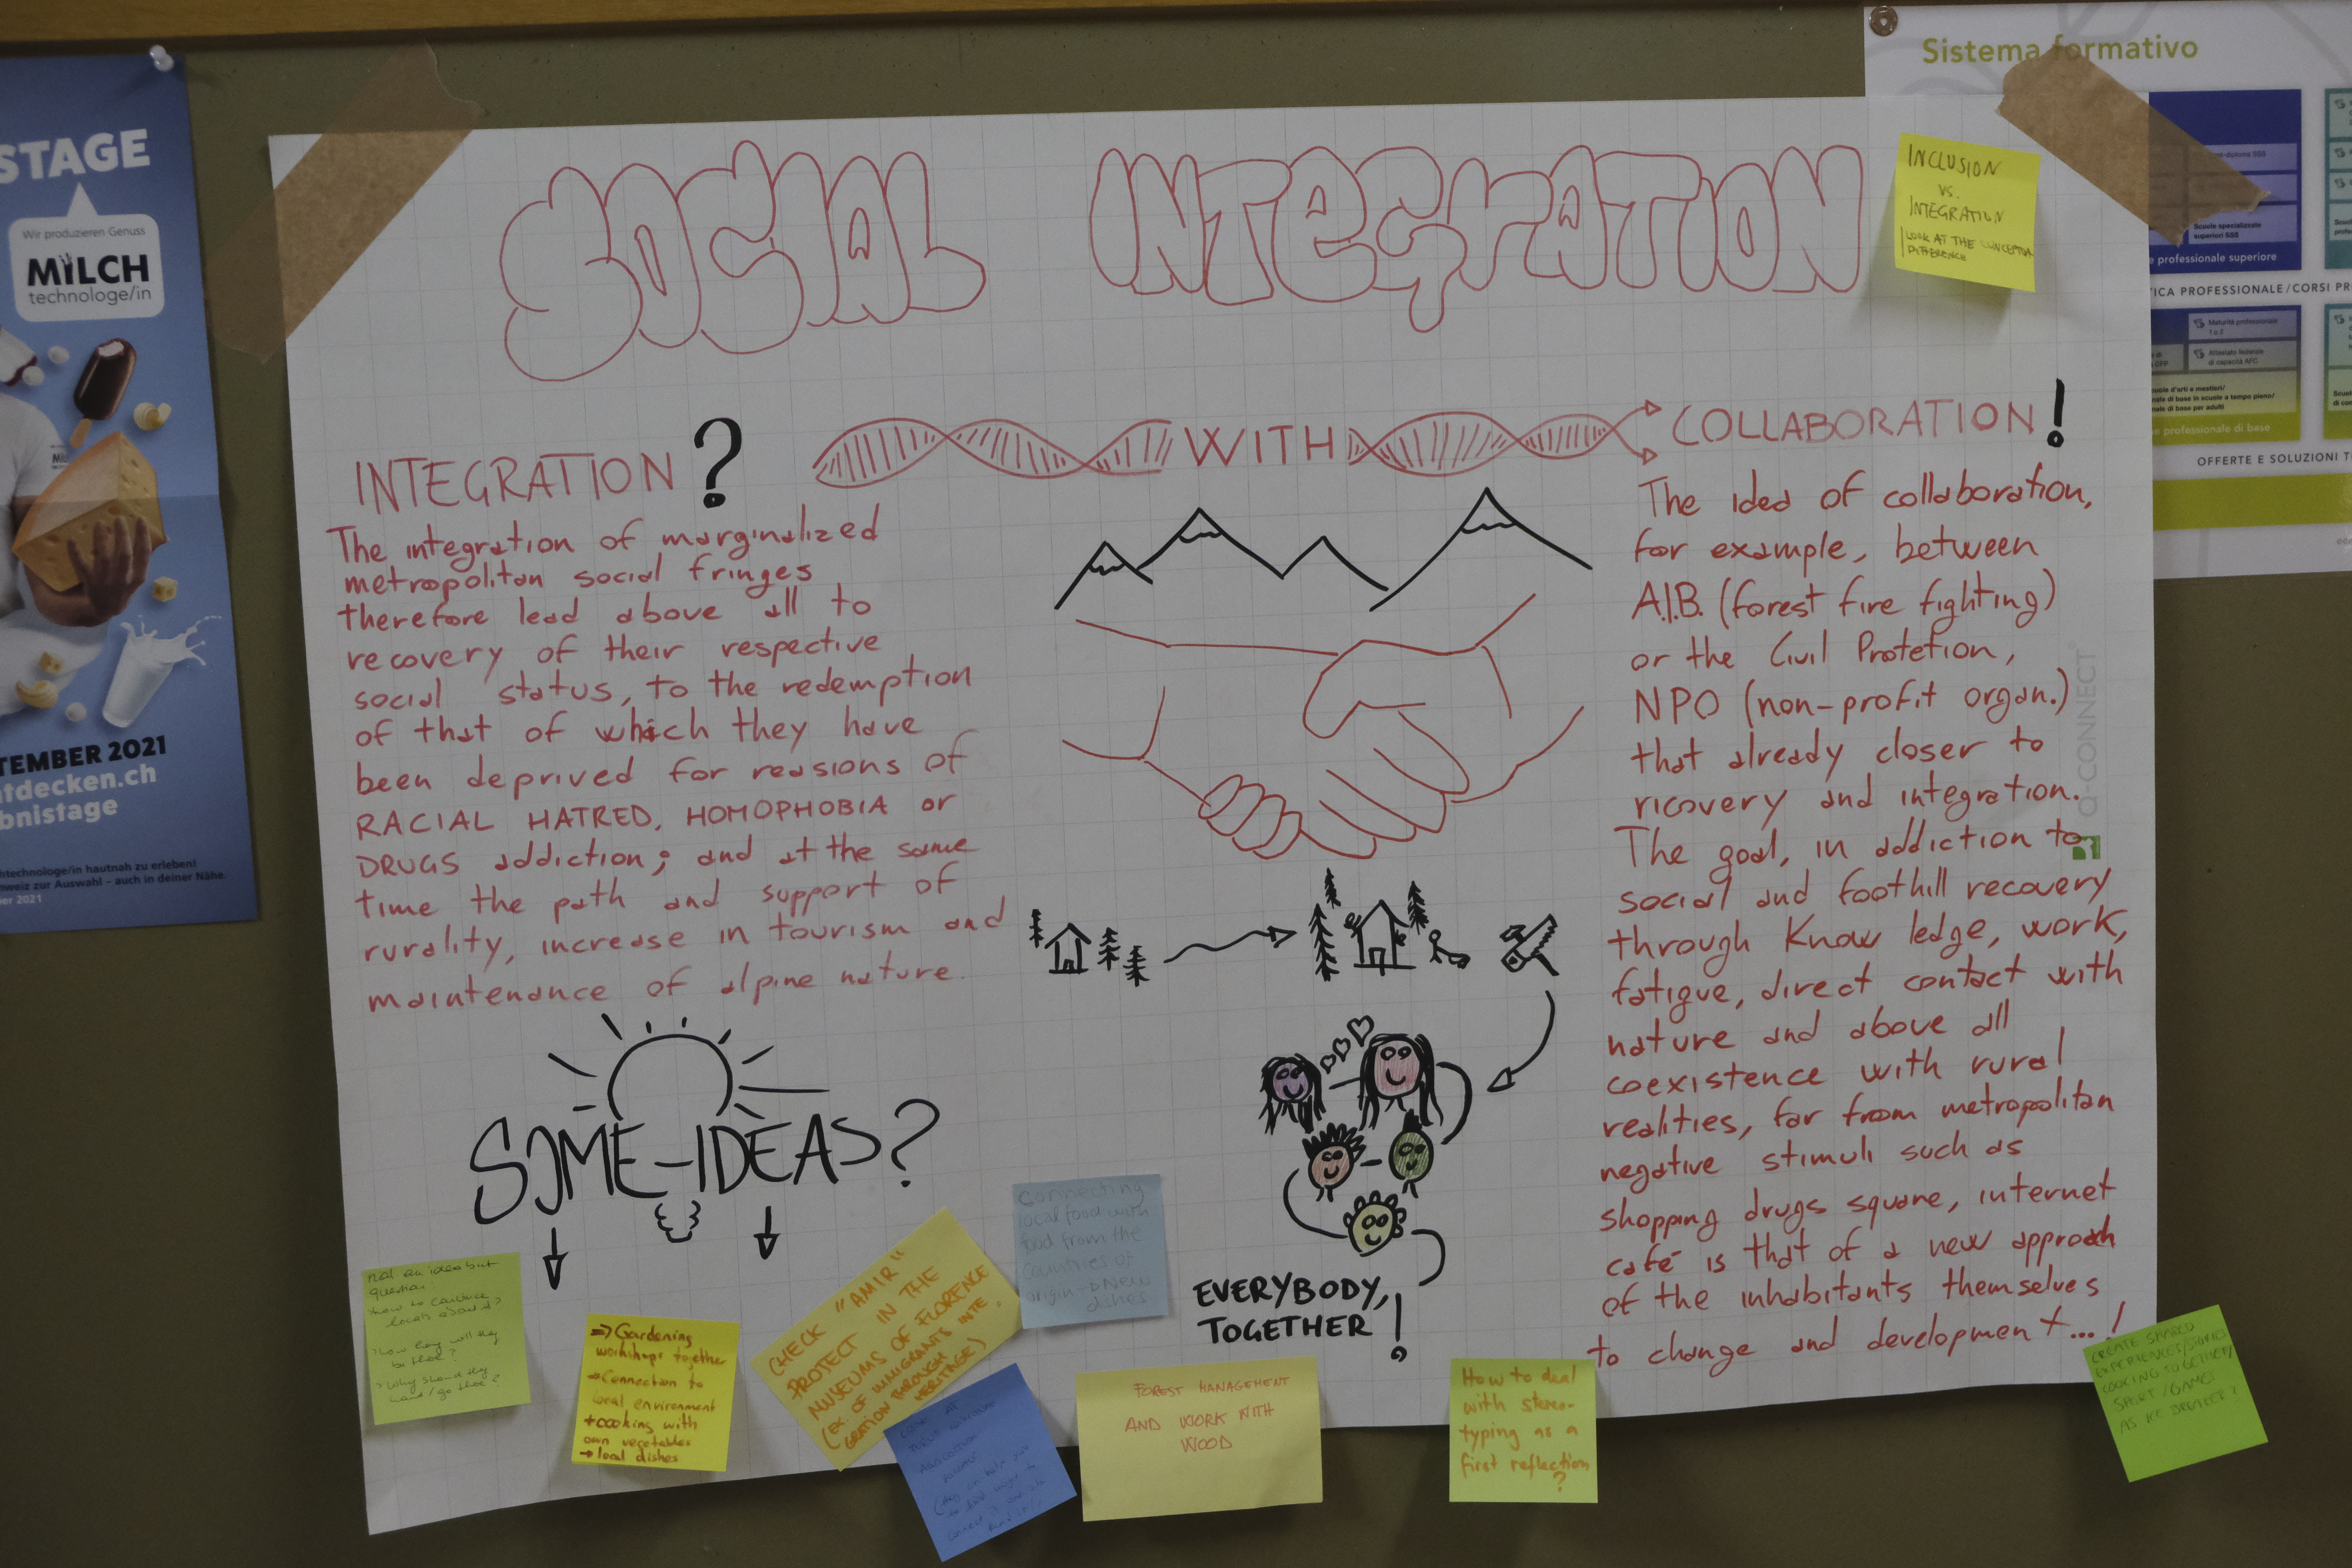 STAGE
Wir produzieren Genuss
MiLCH
technologe/in
TEMBER 2021
tdecken.ch
bnistage
technologe/in hautnah zu erleben!
weiz zur Auswahl – auch in deiner Nähe.
er 2021
SOCIAL INTEGRATION
INCLUSION
VS.
INTEGRATION
LOOK AT THE
DIFFERENCE
Sistema formativo
Scuole specializzate
superiori SSS
e professionale superiore
ICA PROFESSIONALE/CORSI PR
Maturità professionale
1 o 2
Attestato federale
di capacità AFC
di base in scuole a tempo pieno/
di base per adulti
e professionale di base
OFFERTE E SOLUZIONI T
INTEGRATION? WITH COLLABORATION!
The integration of marginalized
metropolitan social fringes
therefore lead above all to
recovery of their respective
social status, to the redemption
of that of which they have
been deprived for reasions of
RACIAL HATRED, HOMOPHOBIA or
DRUGS addiction; and at the same
time the path and support of
rurality, increase in tourism and
maintenance of alpine nature.
The idea of collaboration,
for example, between
A.I.B. (forest fire fighting)
or the Civil Protetion,
NPO (non-profit organ.)
that already closer to
ricovery and integration.
The goal, in addiction to
social and foothill recovery
through Know ledge, work,
fatigue, direct contact with
nature and above all
coexistence with rural
realities, far from metropolitan
negative stimuli such as
shopping drugs square, internet
café is that of a new approach
of the inhabitants themselves
to change and development...!
Q-CONNECT
SOME-IDEAS?
EVERYBODY,
TOGETHER!
not an idea but
question
how to
locals
how long will they
be there?
> Why should they
=> Gardening
workshops together
→ Connection to
local environment
+ cooking with
own vegetables
→ local dishes
CHECK "AMIR"
PROJECT IN THE
MUSEUMS OF FLORENCE
(EX. OF IMMIGRANTS INTE
GRATION THROUGH
HERITAGE)
connecting
local food with
food from the
countries of
origin → New
dishes
FOREST MANAGEMENT
AND WORK WITH
WOOD
How to deal
with stereo-
typing as a
first reflection
?
CREATE SHARED
COOKING TOGETHER/
SPORT/GAMES
AS ICE BREAKER?